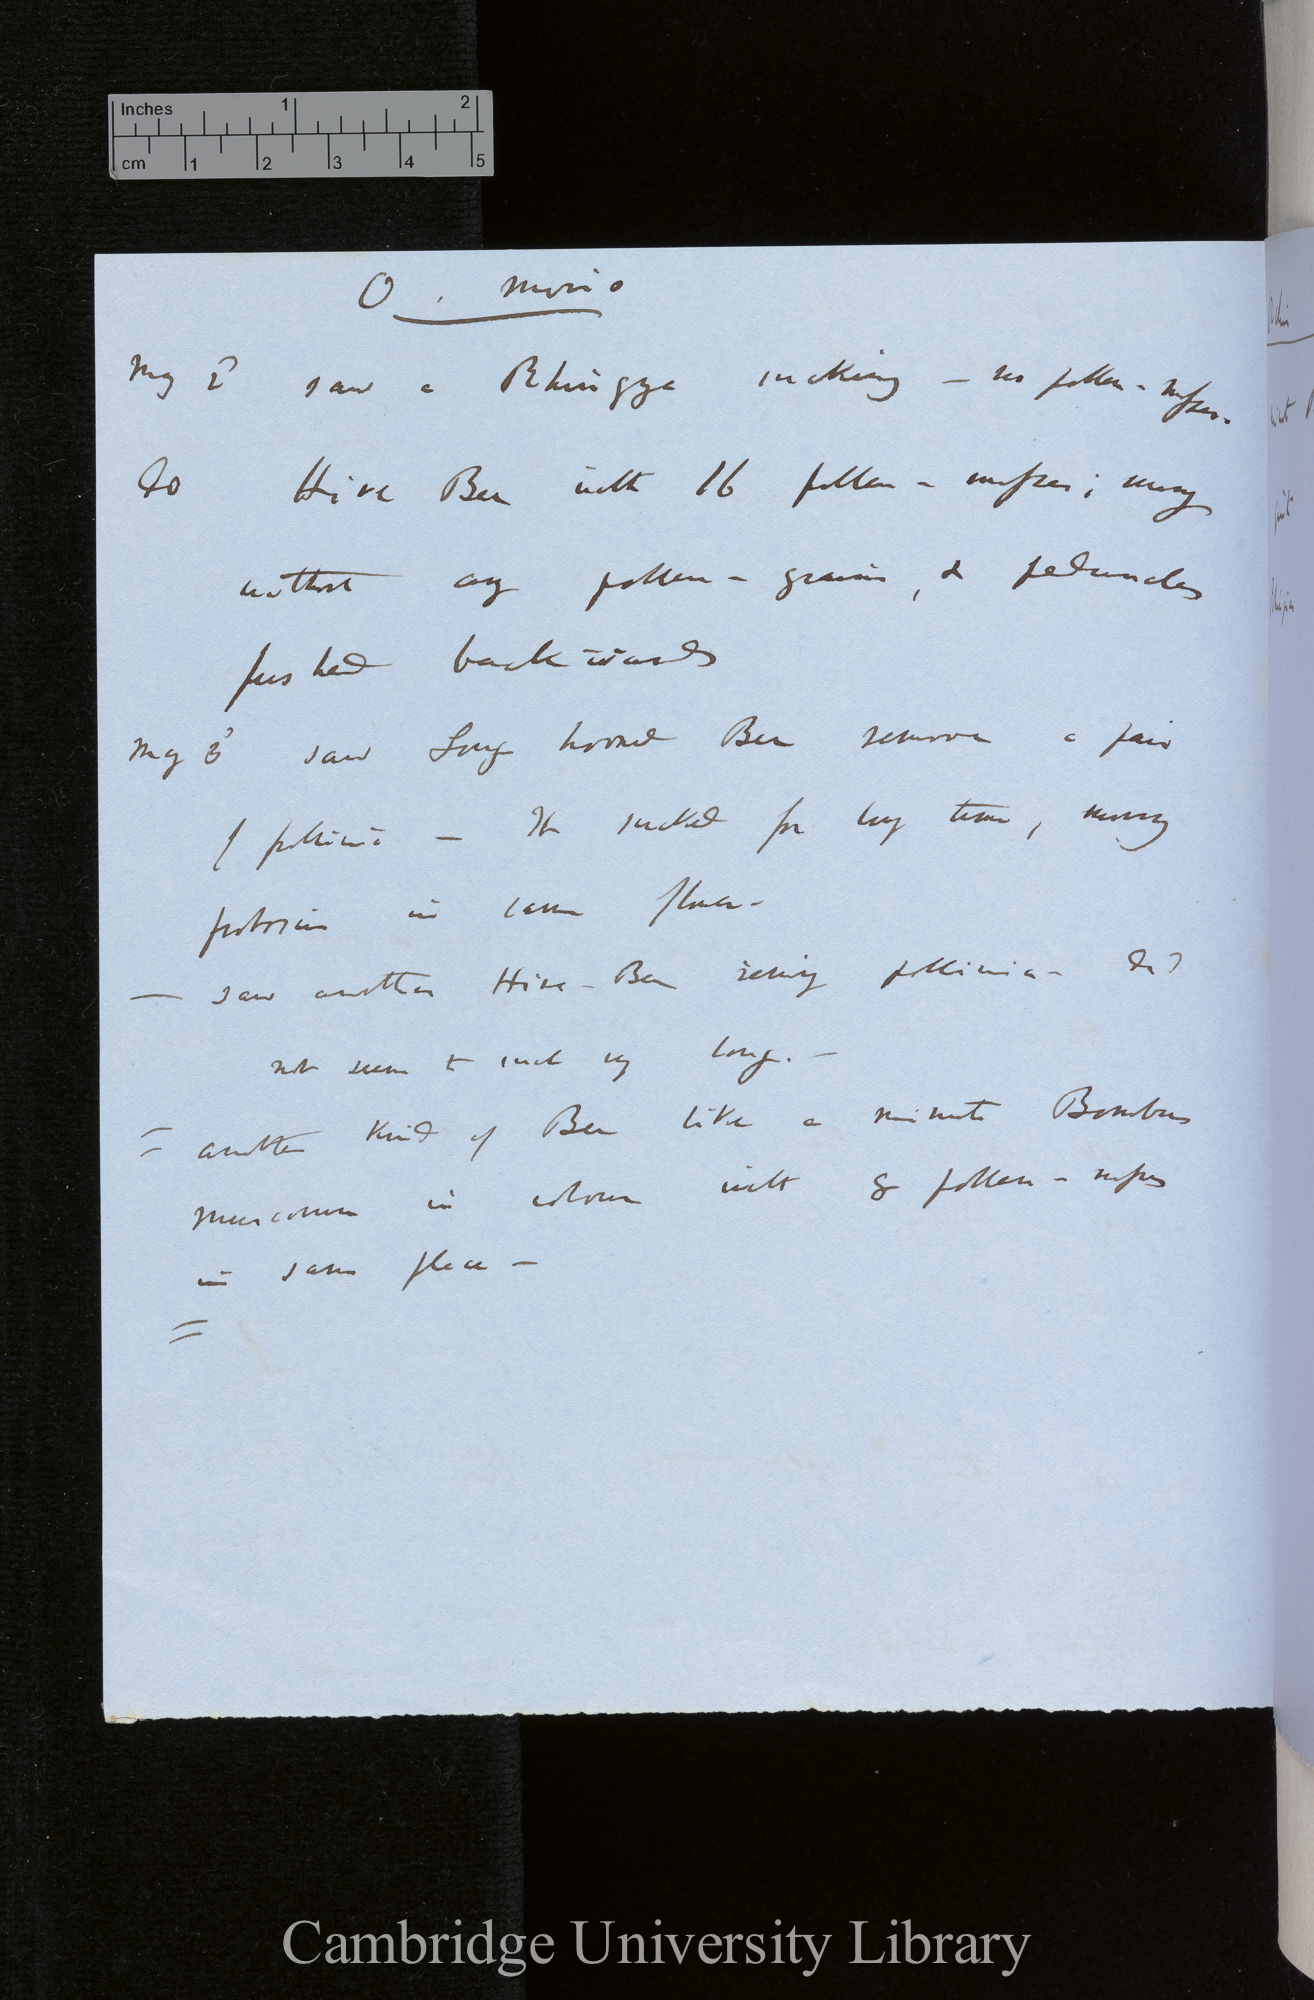 Inches 1 2
cm 1 2 3 4 5
O. morio
My saw a Rhingya sucking — no pollen-masses.
do Hive Bee with 16 pollen-masses; many
without any pollen-grains, & peduncles
pushed backwards
My saw Long horned Bee remove a pair
of pollinia — It sucked for long time, moving
proboscis in same flower-
— saw another Hive-Bee pollinia- did
not seem to suck very long. —
= another kind of Bee like a minute Bombus
muscorum in colour with 8 pollen-masses
in same place —
=
Cambridge University Library